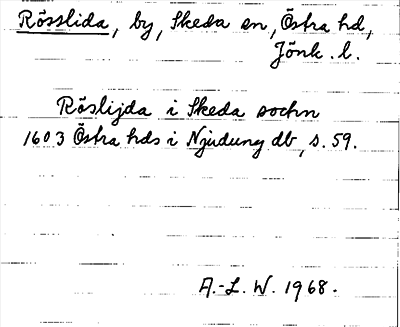 Rösslida, by, Skeda sn, Östra hd,
Jönk. l.
Röslijda i Skeda sochn
1603 Östra hds i Njudung db, s. 59.
A.-L. W. 1968.